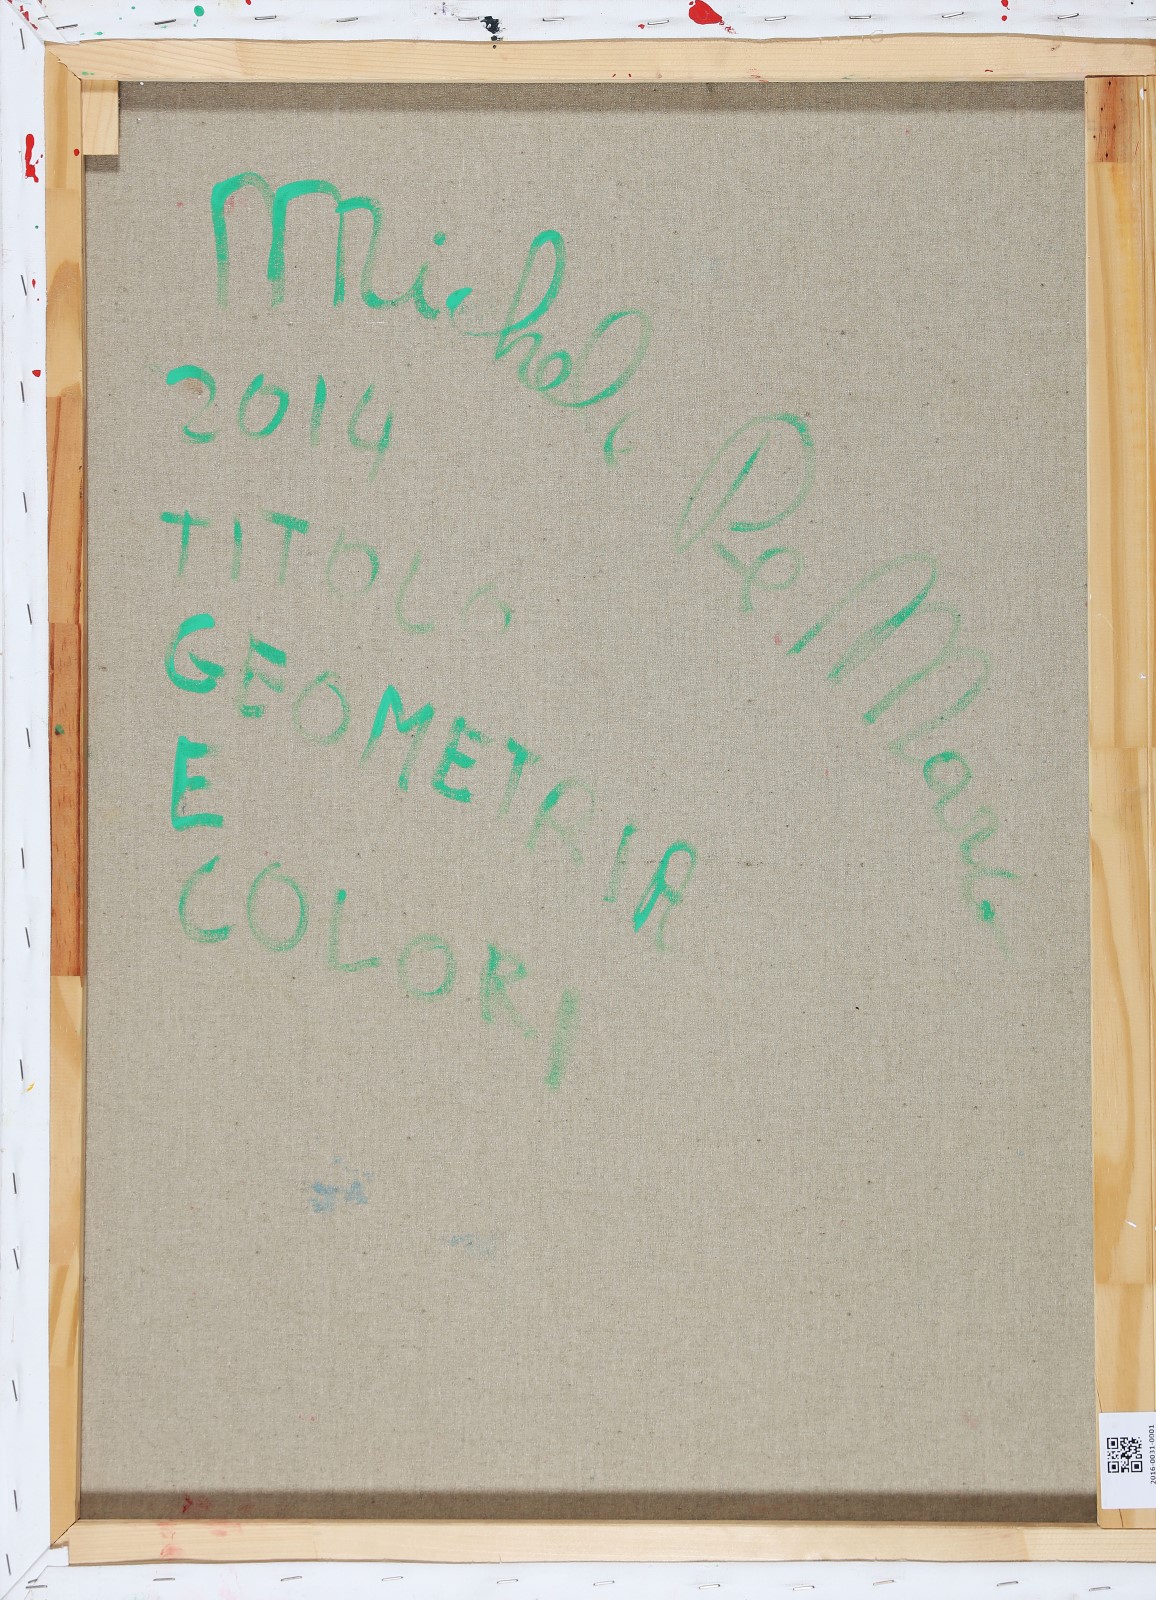 Michele De Marc
2014
TITOLO
GEOMETRIA
E
COLORI
2016-0031-0001